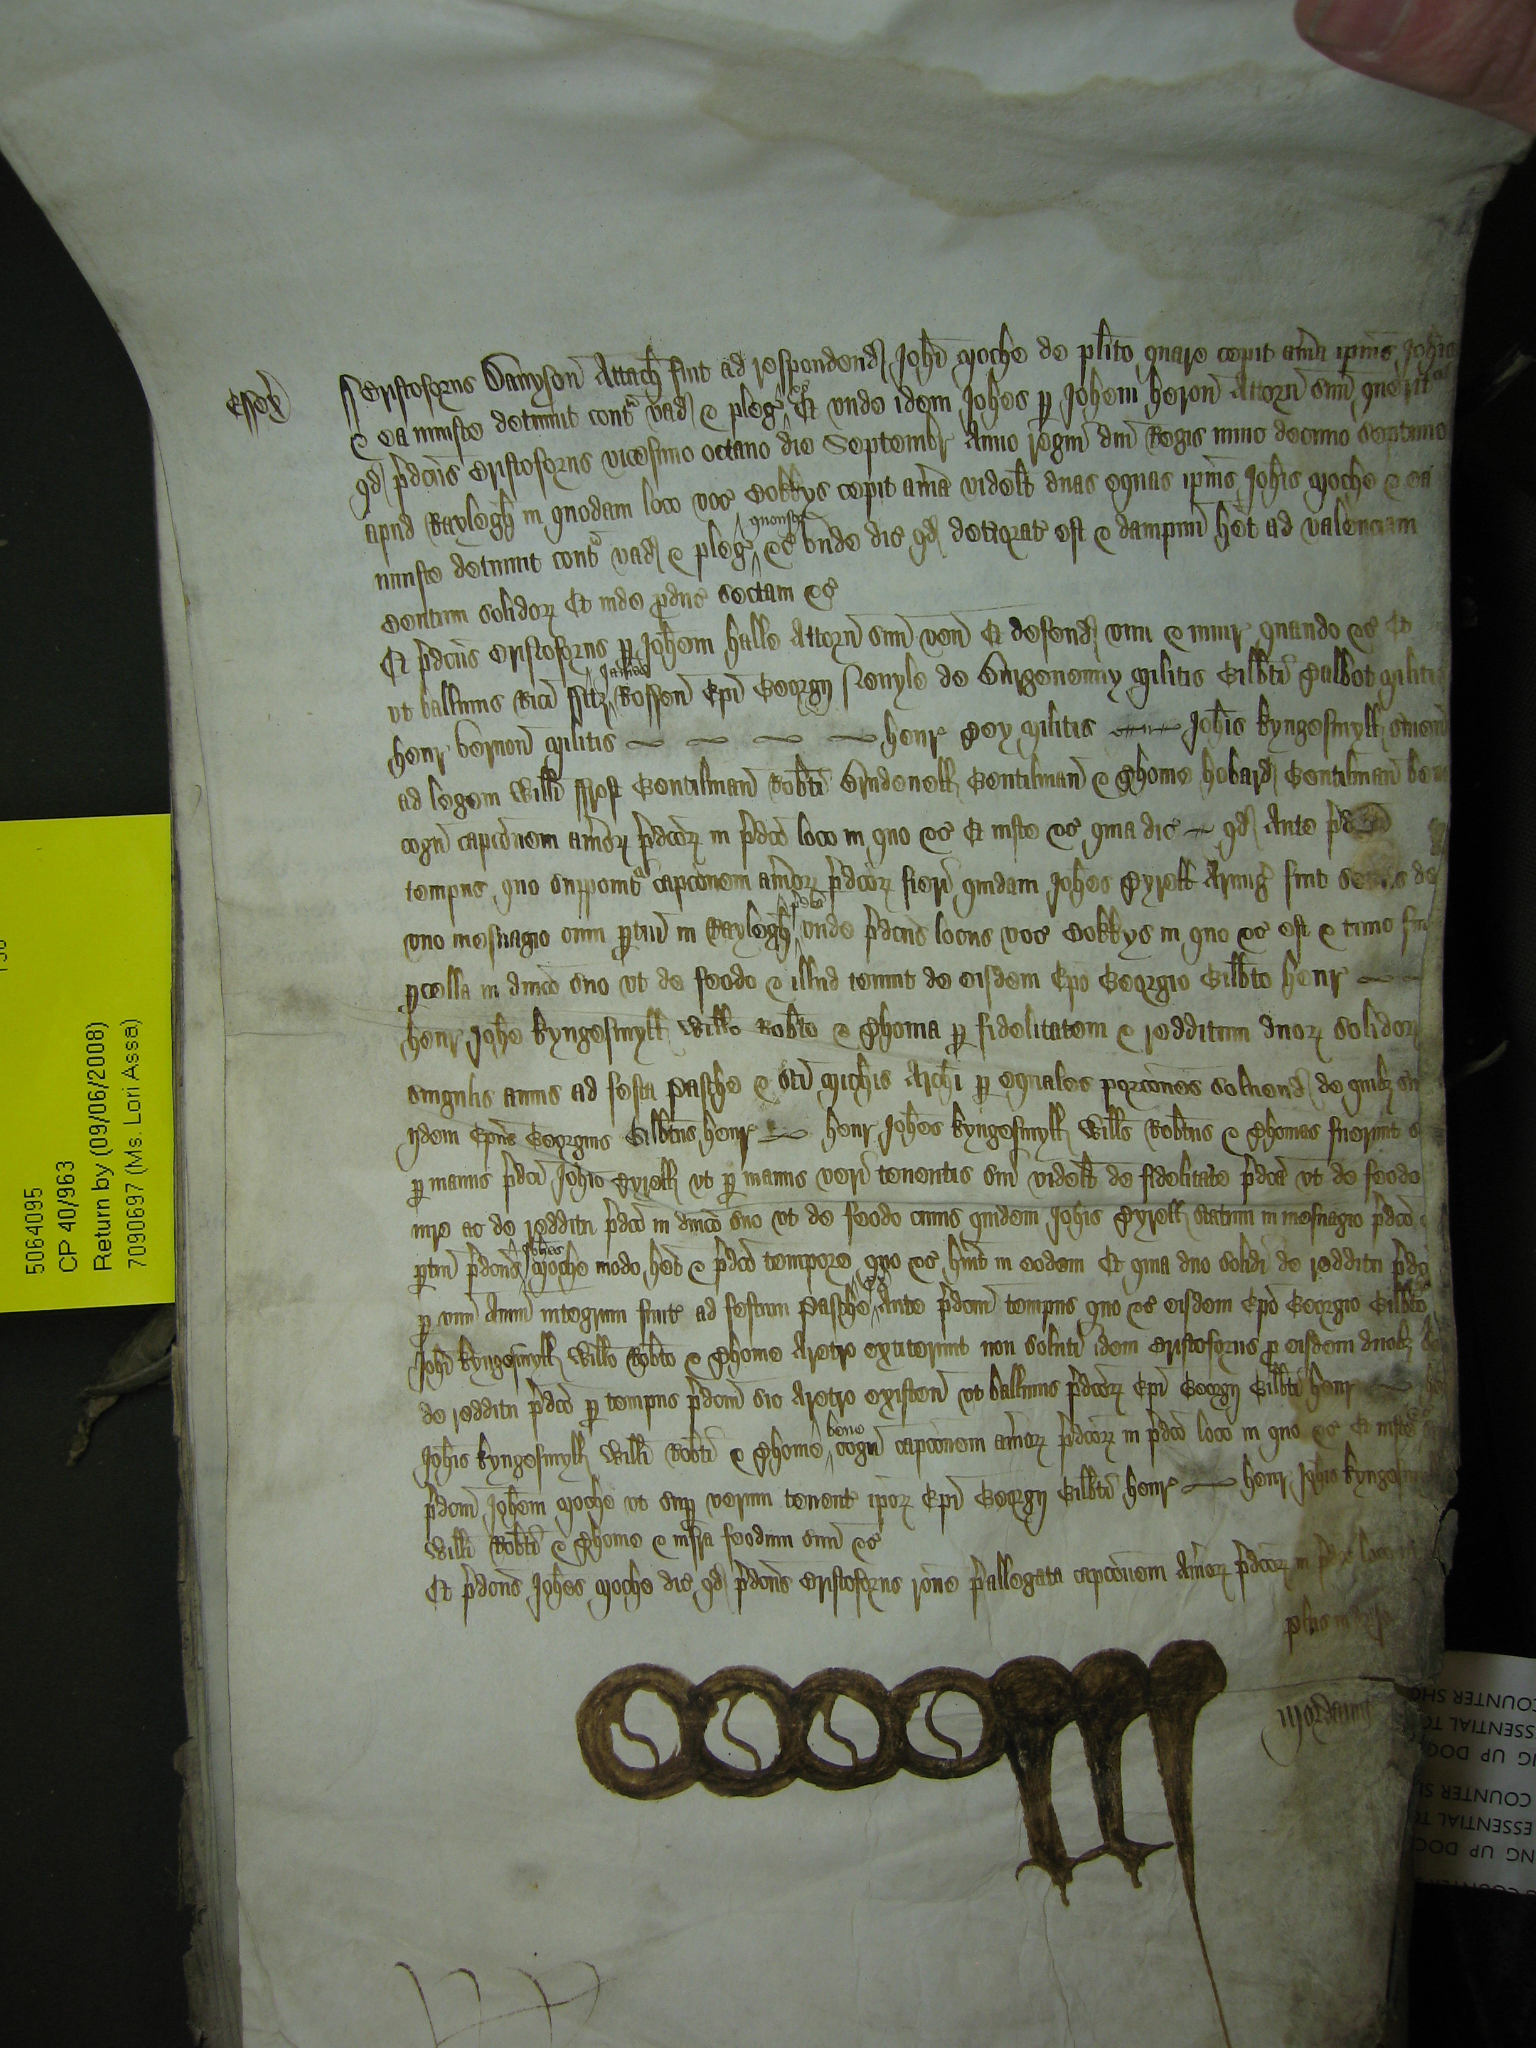 Essex
Cristoforus Dawyson Attach fuit ad respondend Johi Moche de plito quare cepit averia ipius Johis
& ea iniuste detinuit contra vad & pleg &c Et unde idem Johes p Johem Heron Attorn suu querit
qd pdcus Cristoforus vicesimo octavo die Septembr Anno regni dni Regis nunc decimo septimo
apud Raylegh in quodam loco voc Cokkys cepit averia videlt duas equas ipius Johis Moche & ea
iniuste detinuit contra vad & pleg quousq &c unde dic qd deteriorat est & dampnu het ad valenciam
centum solidor Et inde pduc sectam &c
Et pdcus Cristoforus p Johem Halle Attorn suu ven Et defend vim & iniur quando &c Et
ut ballivus Rici Fitz James Roffen Epi Georgii Nevyle de Burgevenny Militis Gilbti Talbot Militis
Henr Vernon Militis Henr Militis Johis Kyngesmyll servien
ad legem Willi Frost Gentilman Robti Brudenell Gentilman & Thome Hobard Gentilman bene
cogn capconem averior pdcor in pdco loco in quo &c Et iuste &c quia dic qd Ante pdcm
tempus quo supponit capconem averior pdcor fieri quidam Johes Tyrell Armig fuit seitus de
uno mesuagio cum ptin in Raylegh pdca unde pdcus locus voc Cokkys in quo &c est & tunc fuit
pcella in dnico suo ut de feodo & illud tenuit de eisdem Epo Georgio Gilbto Henr
Henr Johe Kyngesmyll Willo Robto & Thoma p fidelitatem & redditum duor solidor
singulis annis ad festa Pasche & sci Michis Archi p equales porcones solvend de quibz
ijdem Epus Georgius Gilbtus Henr Henr Johes Kyngesmyll Wills Robtus & Thomas fuerunt
p manus pdci Johis Tyrell ut p manus veri tenentis sui videlt de fidelitate pdca ut de feodo
iure ac de redditu pdco in dnico suo ut de feodo cuius quidem Johis Tyrell statum in mesuagio pdco
ptin pdcus Johes Moche modo het & pdco tempore quo &c huit in eodem Et quia duo solidi de redditu pdco
p unu Annu integrum finit ad festum Pasche px Ante pdcm tempus quo &c eisdem Epo Georgio Gilbto
Johi Kyngesmyll Willo Robto & Thome Aretro extiterunt non soluti idem Cristoforus p eisdem duobz
de redditu pdco p tempus pdcm sic Aretro existen ut ballivus pdcor Epi Georgii Gilbti Henr
Johis Kyngesmyll Willi Robti & Thome bene cogn capconem averior pdcor in pdco loco in quo &c Et iuste
pdcm Johem Moche ut sup verum tenent ipor Epi Georgii Gilbti Henr Henr Johis Kyngesmyll
Willi Robti & Thome & infra feodum suu &c
Et pdcus Johes Moche dic qd pdcus Cristoforus rone pallegata capconem averior pdcor in pdco loco
plus in
Mordaunt
5064095
CP 40/963
Return by (09/06/2008)
7090697 (Ms. Lori Assa)